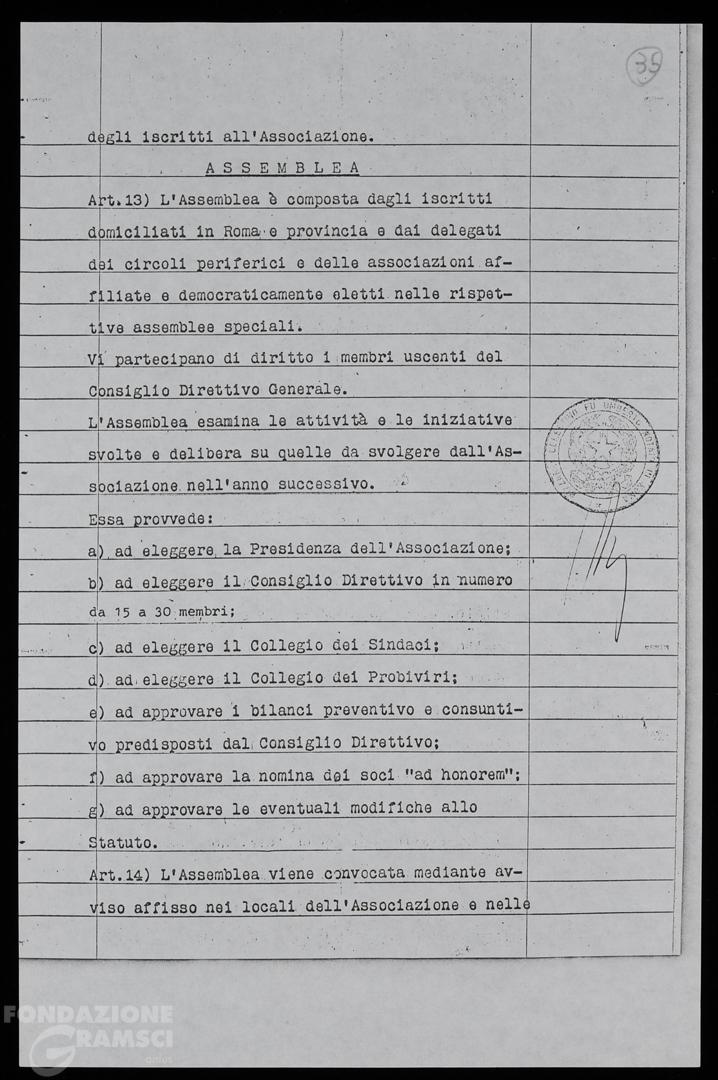 35
degli iscritti all'Associazione.
A S S E M B L E A
Art.13) L'Assemblea è composta dagli iscritti
domiciliati in Roma e provincia e dai delegati
dei circoli periferici e delle associazioni af-
filiate e democraticamente eletti nelle rispet-
tive assemblee speciali.
Vi partecipano di diritto i membri uscenti del
Consiglio Direttivo Generale.
L'Assemblea esamina le attività e le iniziative
svolte e delibera su quelle da svolgere dall'As-
sociazione nell'anno successivo.
Essa provvede:
a) ad eleggere la Presidenza dell'Associazione;
b) ad eleggere il Consiglio Direttivo in numero
da 15 a 30 membri;
c) ad eleggere il Collegio dei Sindaci;
d) ad eleggere il Collegio dei Probiviri;
e) ad approvare i bilanci preventivo e consunti-
vo predisposti dal Consiglio Direttivo;
f) ad approvare la nomina dei soci "ad honorem";
g) ad approvare le eventuali modifiche allo
Statuto.
Art.14) L'Assemblea viene convocata mediante av-
viso affisso nei locali dell'Associazione e nelle
FU UMBERTO NOTAIO IN
FONDAZIONE
GRAMSCI
onlus